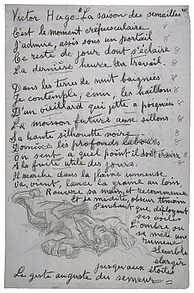 Victor Hugo "La saison des semailles"
C'est le moment crépusculaire
J'admire, assis sous un portail
Ce reste de jour dont s'éclaire
La dernière heure du travail.
Dans les terres de nuit baignées
Je contemple, ému, les haillons
D'un vieillard qui jette à poignées
La moisson future aux sillons
Sa haute silhouette noire
Domine les profonds labours
On sent à quel point il doit croire
A la fuite utile des jours.
Il marche dans la plaine immense
Va, vient, lance la graine au loin
Rouvre sa main, et recommence
Et je médite, obscur témoin
Pendant que, déployant
ses voiles
L'ombre où
se mêle une
rumeur
Semble
élargir
jusqu'aux étoiles
Le geste auguste du semeur